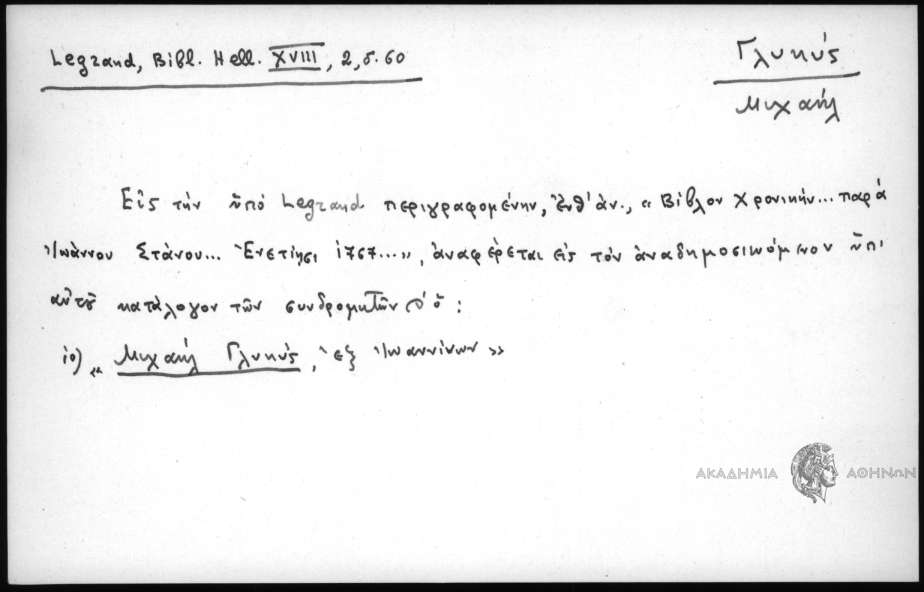 Legrand, Bibl. Hell. XVIII, 2, σ. 60
Γλυκύς
Μιχαήλ
Εἰς τὴν ὑπὸ Legrand περιγραφομένην, ἔνθ' ἀν., « Βίβλον Χρονικὴν... παρὰ
Ἰωάννου Στάνου... Ἐνετίησι 1767...», ἀναφέρεται εἰς τὸν ἀναδημοσιευόμενον ὑπ'
αὐτοῦ κατάλογον τῶν συνδρομητῶν ὁ :
« Μιχαήλ Γλυκύς, ἐξ Ἰωαννίνων »
ΑΚΑΔΗΜΙΑ ΑΘΗΝΩΝ